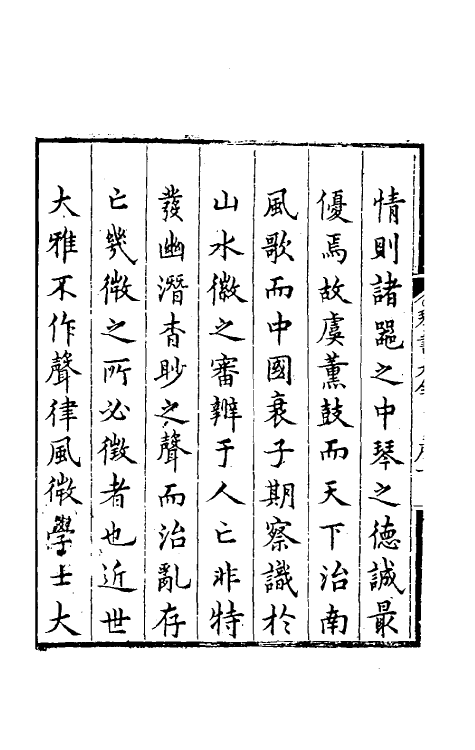 情則諸噐之中琴之德誠最
優焉故虞薰鼓而天下治南
風歌而中國衰子期察識於
山水微之審辨于人亡非特
發幽潛杳眇之聲而治亂存
亡幾微之所必徵者也近世
大雅不作聲律風微學士大
琴書大全
序